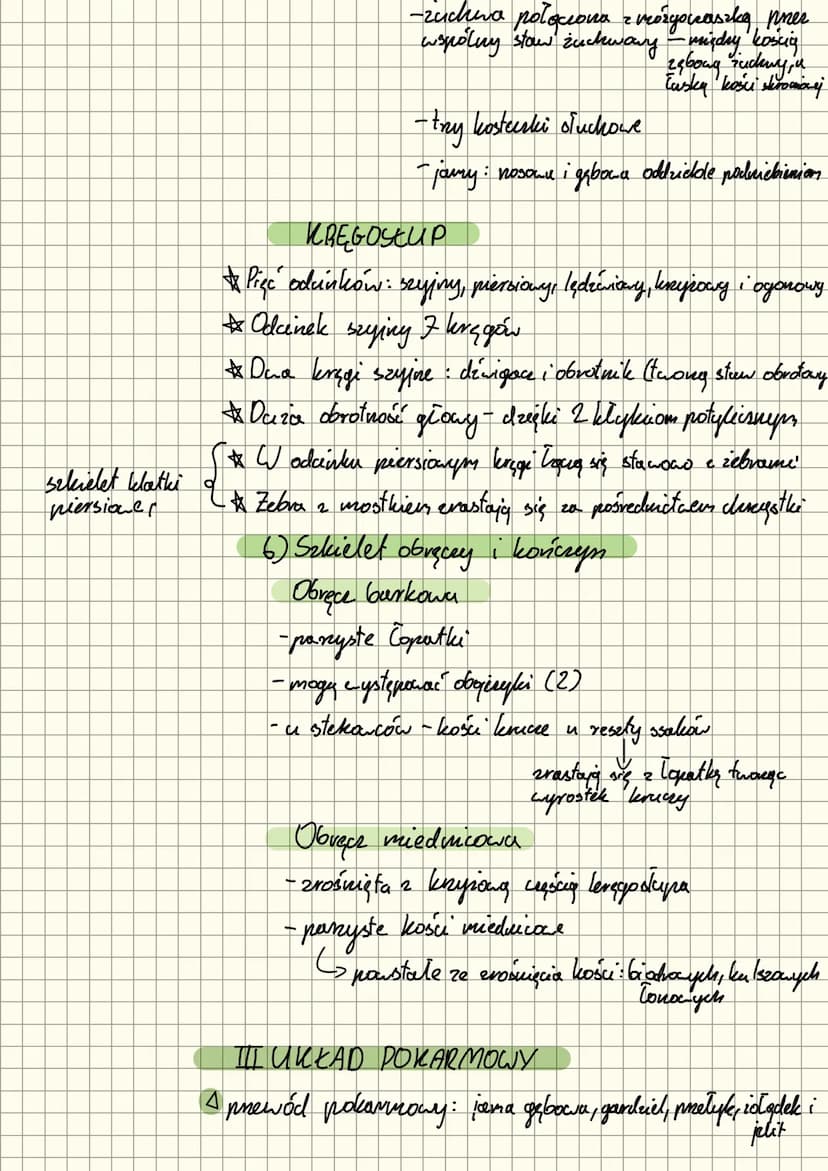 -żuchwa połączona z mózgoczaszką przez
wspólny staw żuchwowy – między kością
zębową żuchwy, a
łuską kości skroniowej
- trzy kosteczki słuchowe
- jamy: nosowa i gębowa oddzielone podniebieniem
KRĘGOSŁUP
☆ Pięć odcinków: szyjny, piersiowy, lędźwiowy, krzyżowy i ogonowy
☆ Odcinek szyjny 7 kręgów
☆ Dwa kręgi szyjne: dźwigacz i obrotnik (tworzą staw obrotowy
☆ Duża obrotność głowy – dzięki 2 kłykciom potylicznym
☆ W odcinku piersiowym kręgi łączą się stawowo z żebrami
szkielet klatki
piersiowej
☆ Żebra z mostkiem zrastają się za pośrednictwem chrząstki
6) Szkielet obręczy i kończyn
Obręcz barkowa
- parzyste łopatki
- mogą występować obojczyki (2)
- u stekowców – kości krucze u reszty ssaków
↓
zrastają się z łopatką tworząc
wyrostek kruczy
Obręcz miednicowa
- zrośnięta z krzyżową częścią kręgosłupa
- parzyste kości miednicowe
↳ powstałe ze zrośnięcia kości: biodrowych, kulszowych
łonowych
III UKŁAD POKARMOWY
△ przewód pokarmowy: jama gębowa, gardziel, przełyk, żołądek i
jelit